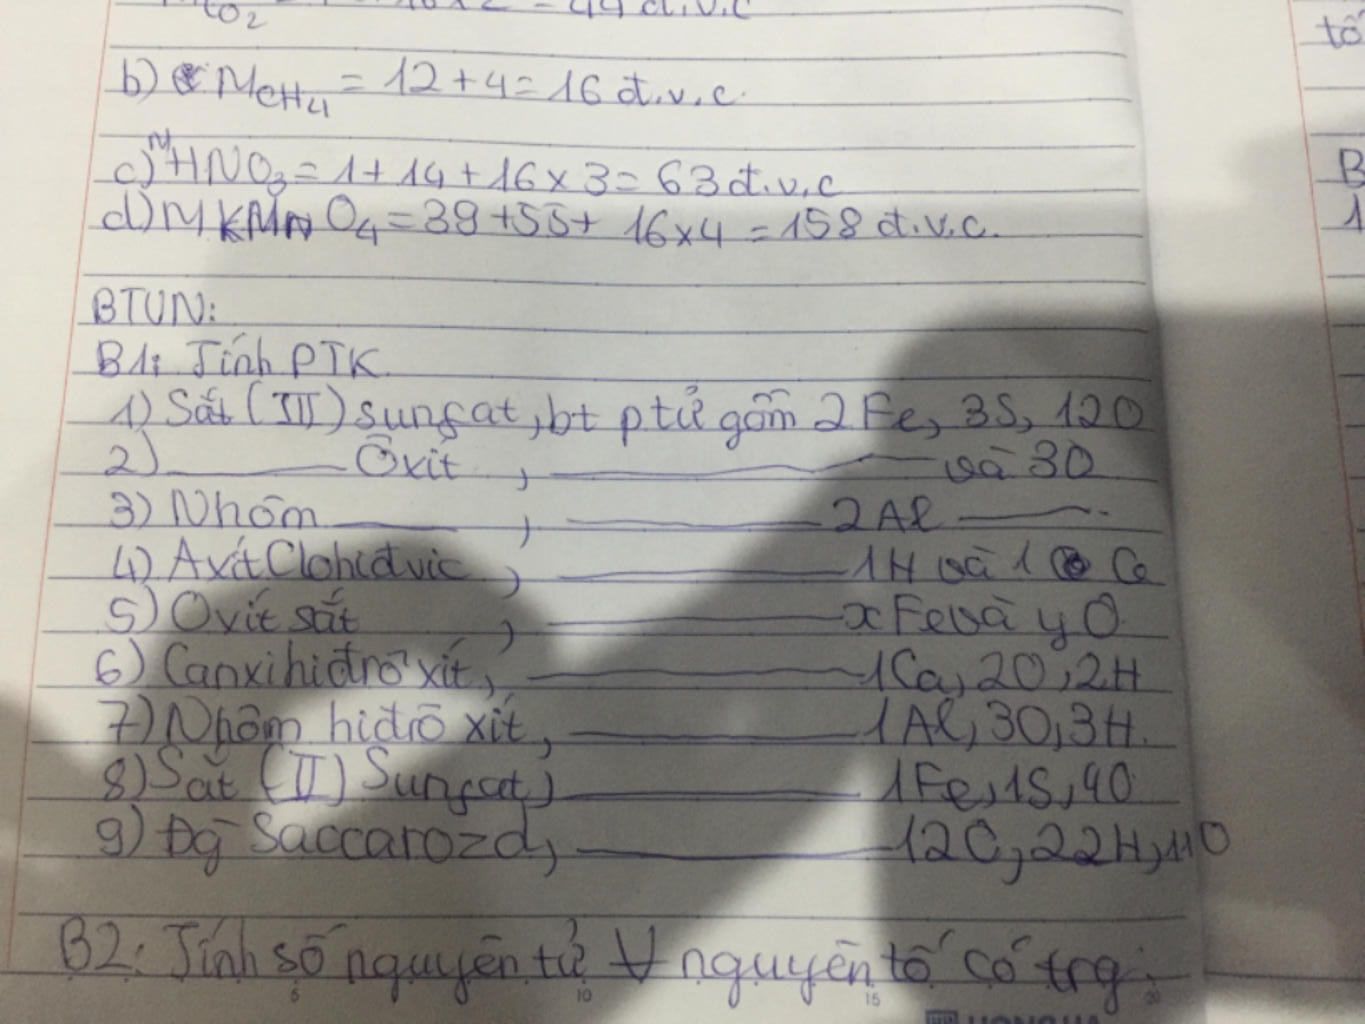 CO2 16x2 = 44 đ.v.c
tố
b) MCH4 = 12 + 4 = 16 đ.v.c.
c) MHNO3 = 1 + 14 + 16 x 3 = 63 đ.v.c
B
d) M KMnO4 = 39 + 55 + 16x4 = 158 đ.v.c.
1
BTVN:
B1: Tính PTK
1) Sắt (III) sunfat, bt ptử gồm 2 Fe, 3S, 12O
2) ——— Ôxit, ——— và 3O
3) Nhôm ———, ——— 2 Al ———
4) Axít Clohiđric, ——— 1H và 1 Cl
5) Oxít sắt, ——— x Fe và y O
6) Canxi hiđrô xít, ——— 1 Ca, 2O, 2H
7) Nhôm hiđrô xít, ——— 1 Al, 3O, 3H.
8) Sắt (II) Sunfat, ——— 1 Fe, 1S, 4O
9) Đg Saccarozơ, ——— 12C, 22H, 11O
B2: Tính số nguyên tử ∀ nguyên tố có trg:
5 10 15 20